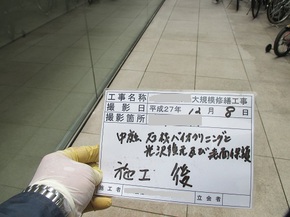 工事名称 大規模修繕工事
撮影日 平成27年 12月 8日
撮影箇所
石材バイオクリーニングと
光沢復元及び表面保護
施工 後
施工者 立会者